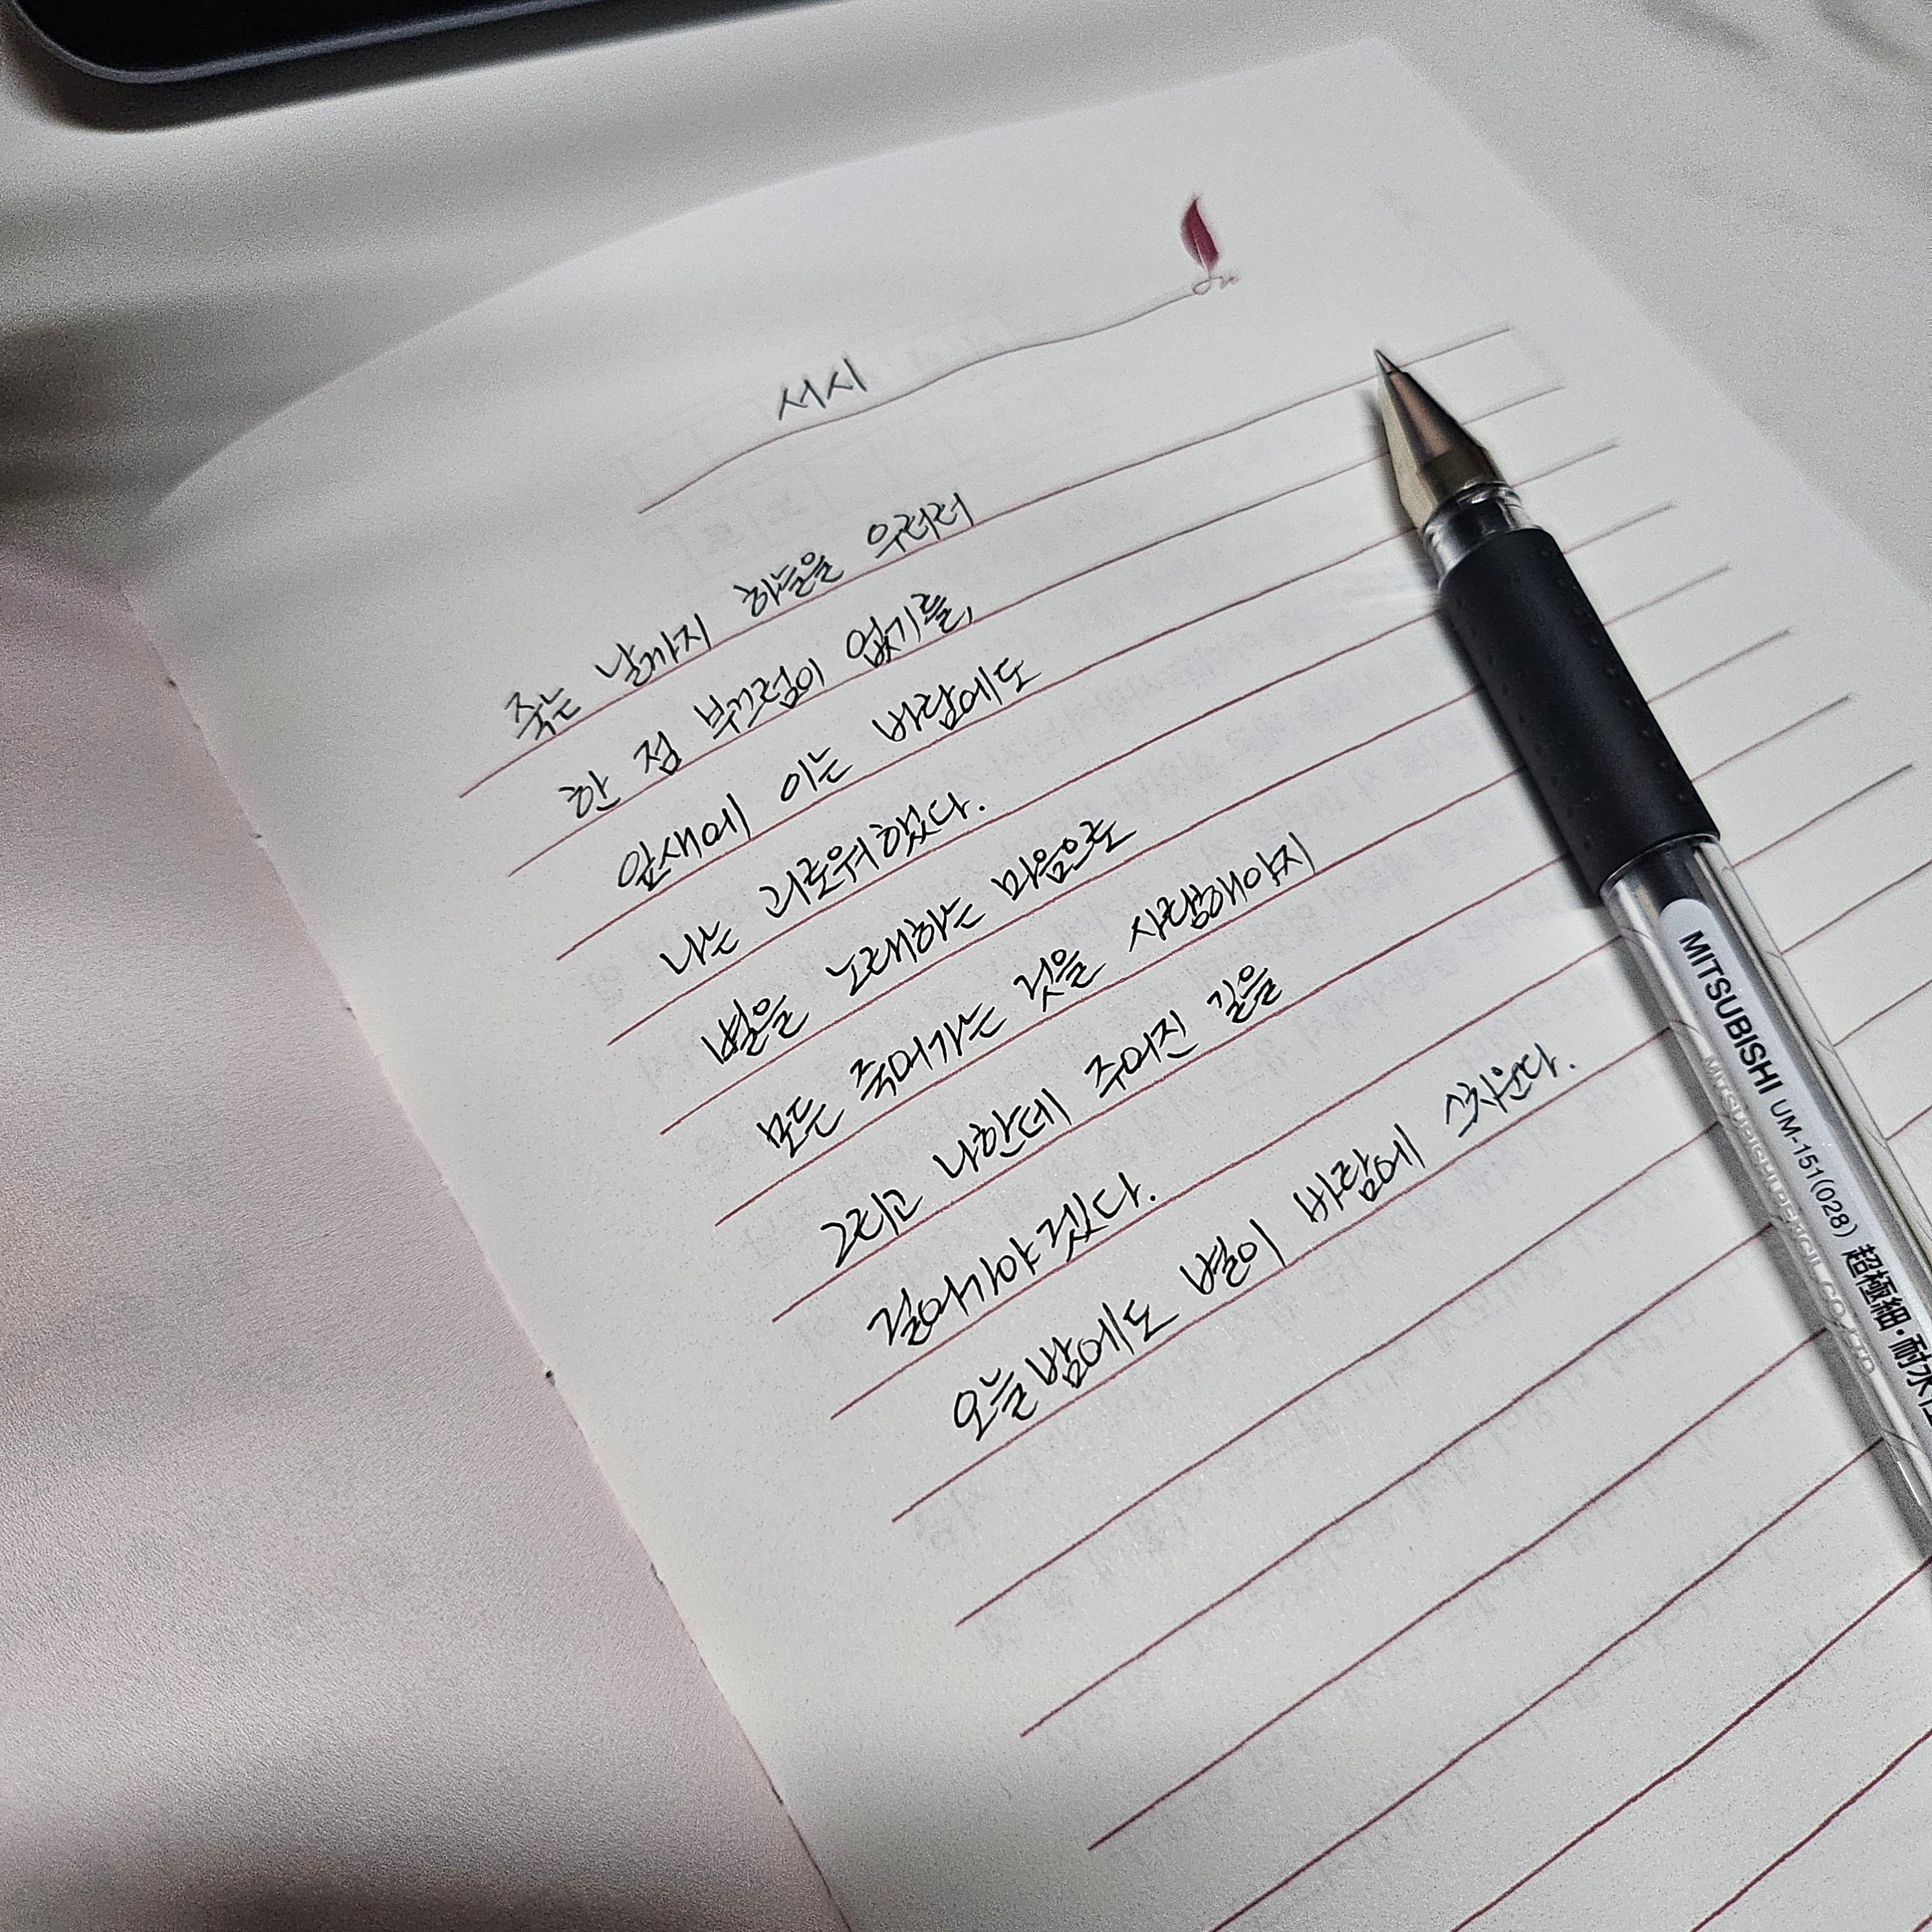 서시
죽는 날까지 하늘을 우러러
한 점 부끄럼이 없기를,
잎새에 이는 바람에도
나는 괴로워했다.
별을 노래하는 마음으로
모든 죽어가는 것을 사랑해야지
그리고 나한테 주어진 길을
걸어가야겠다.
오늘밤에도 별이 바람에 스치운다.
MITSUBISHI UM-151(028) 超極細・耐水
MITSUBISHI PENCIL CO., LTD